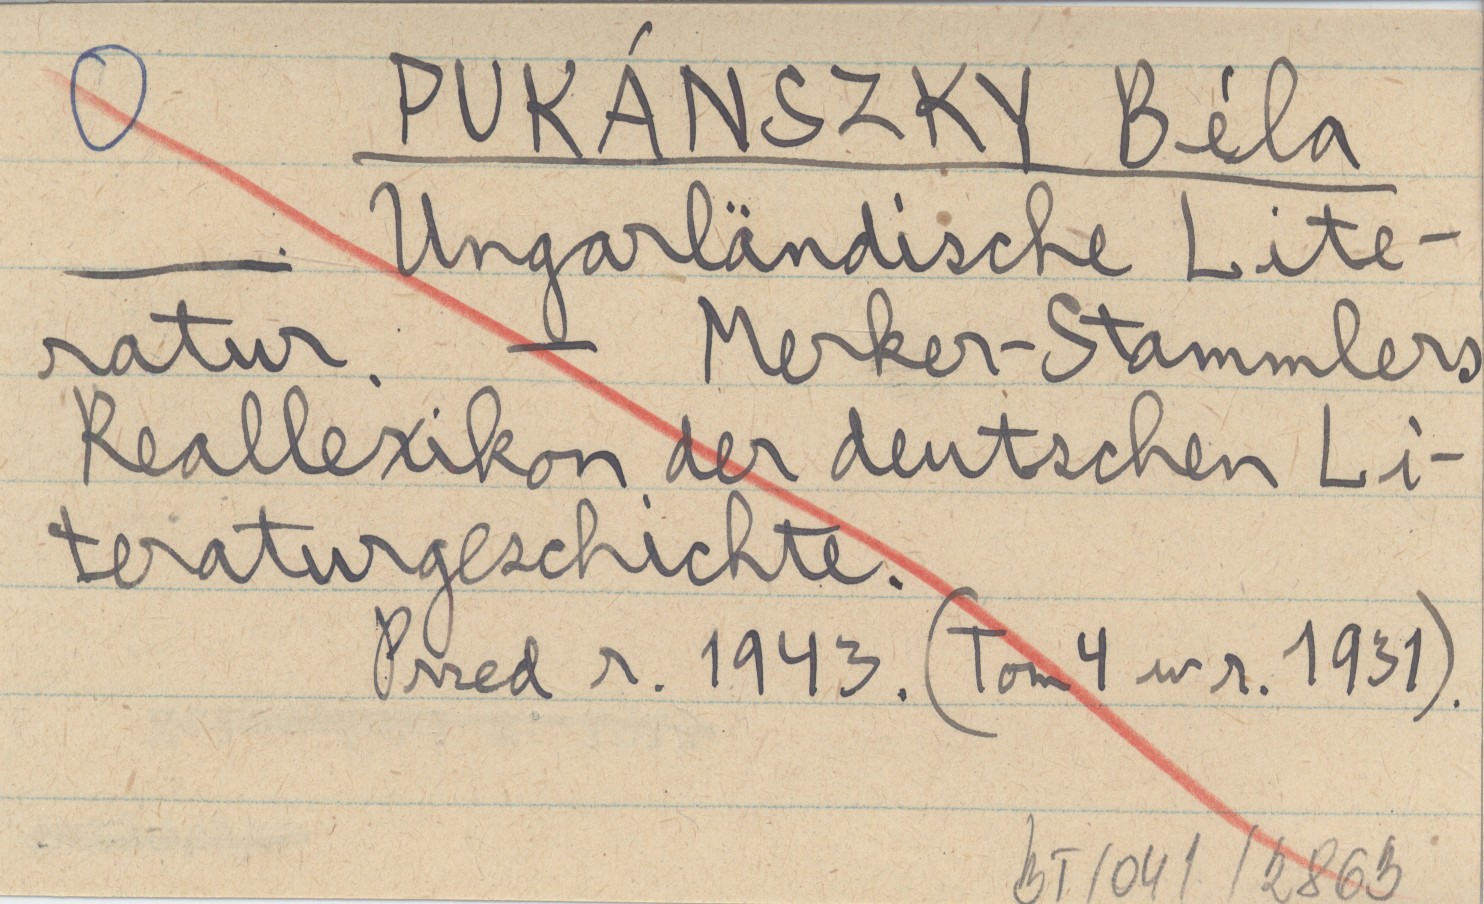 PUKÁNSZKY Béla
Ungarländische Lite-
ratur. — Merker-Stammlers
Reallexikon der deutschen Li-
teraturgeschichte.
Przed r. 1943. (Tom 4 w r. 1931).
BT/041/2863